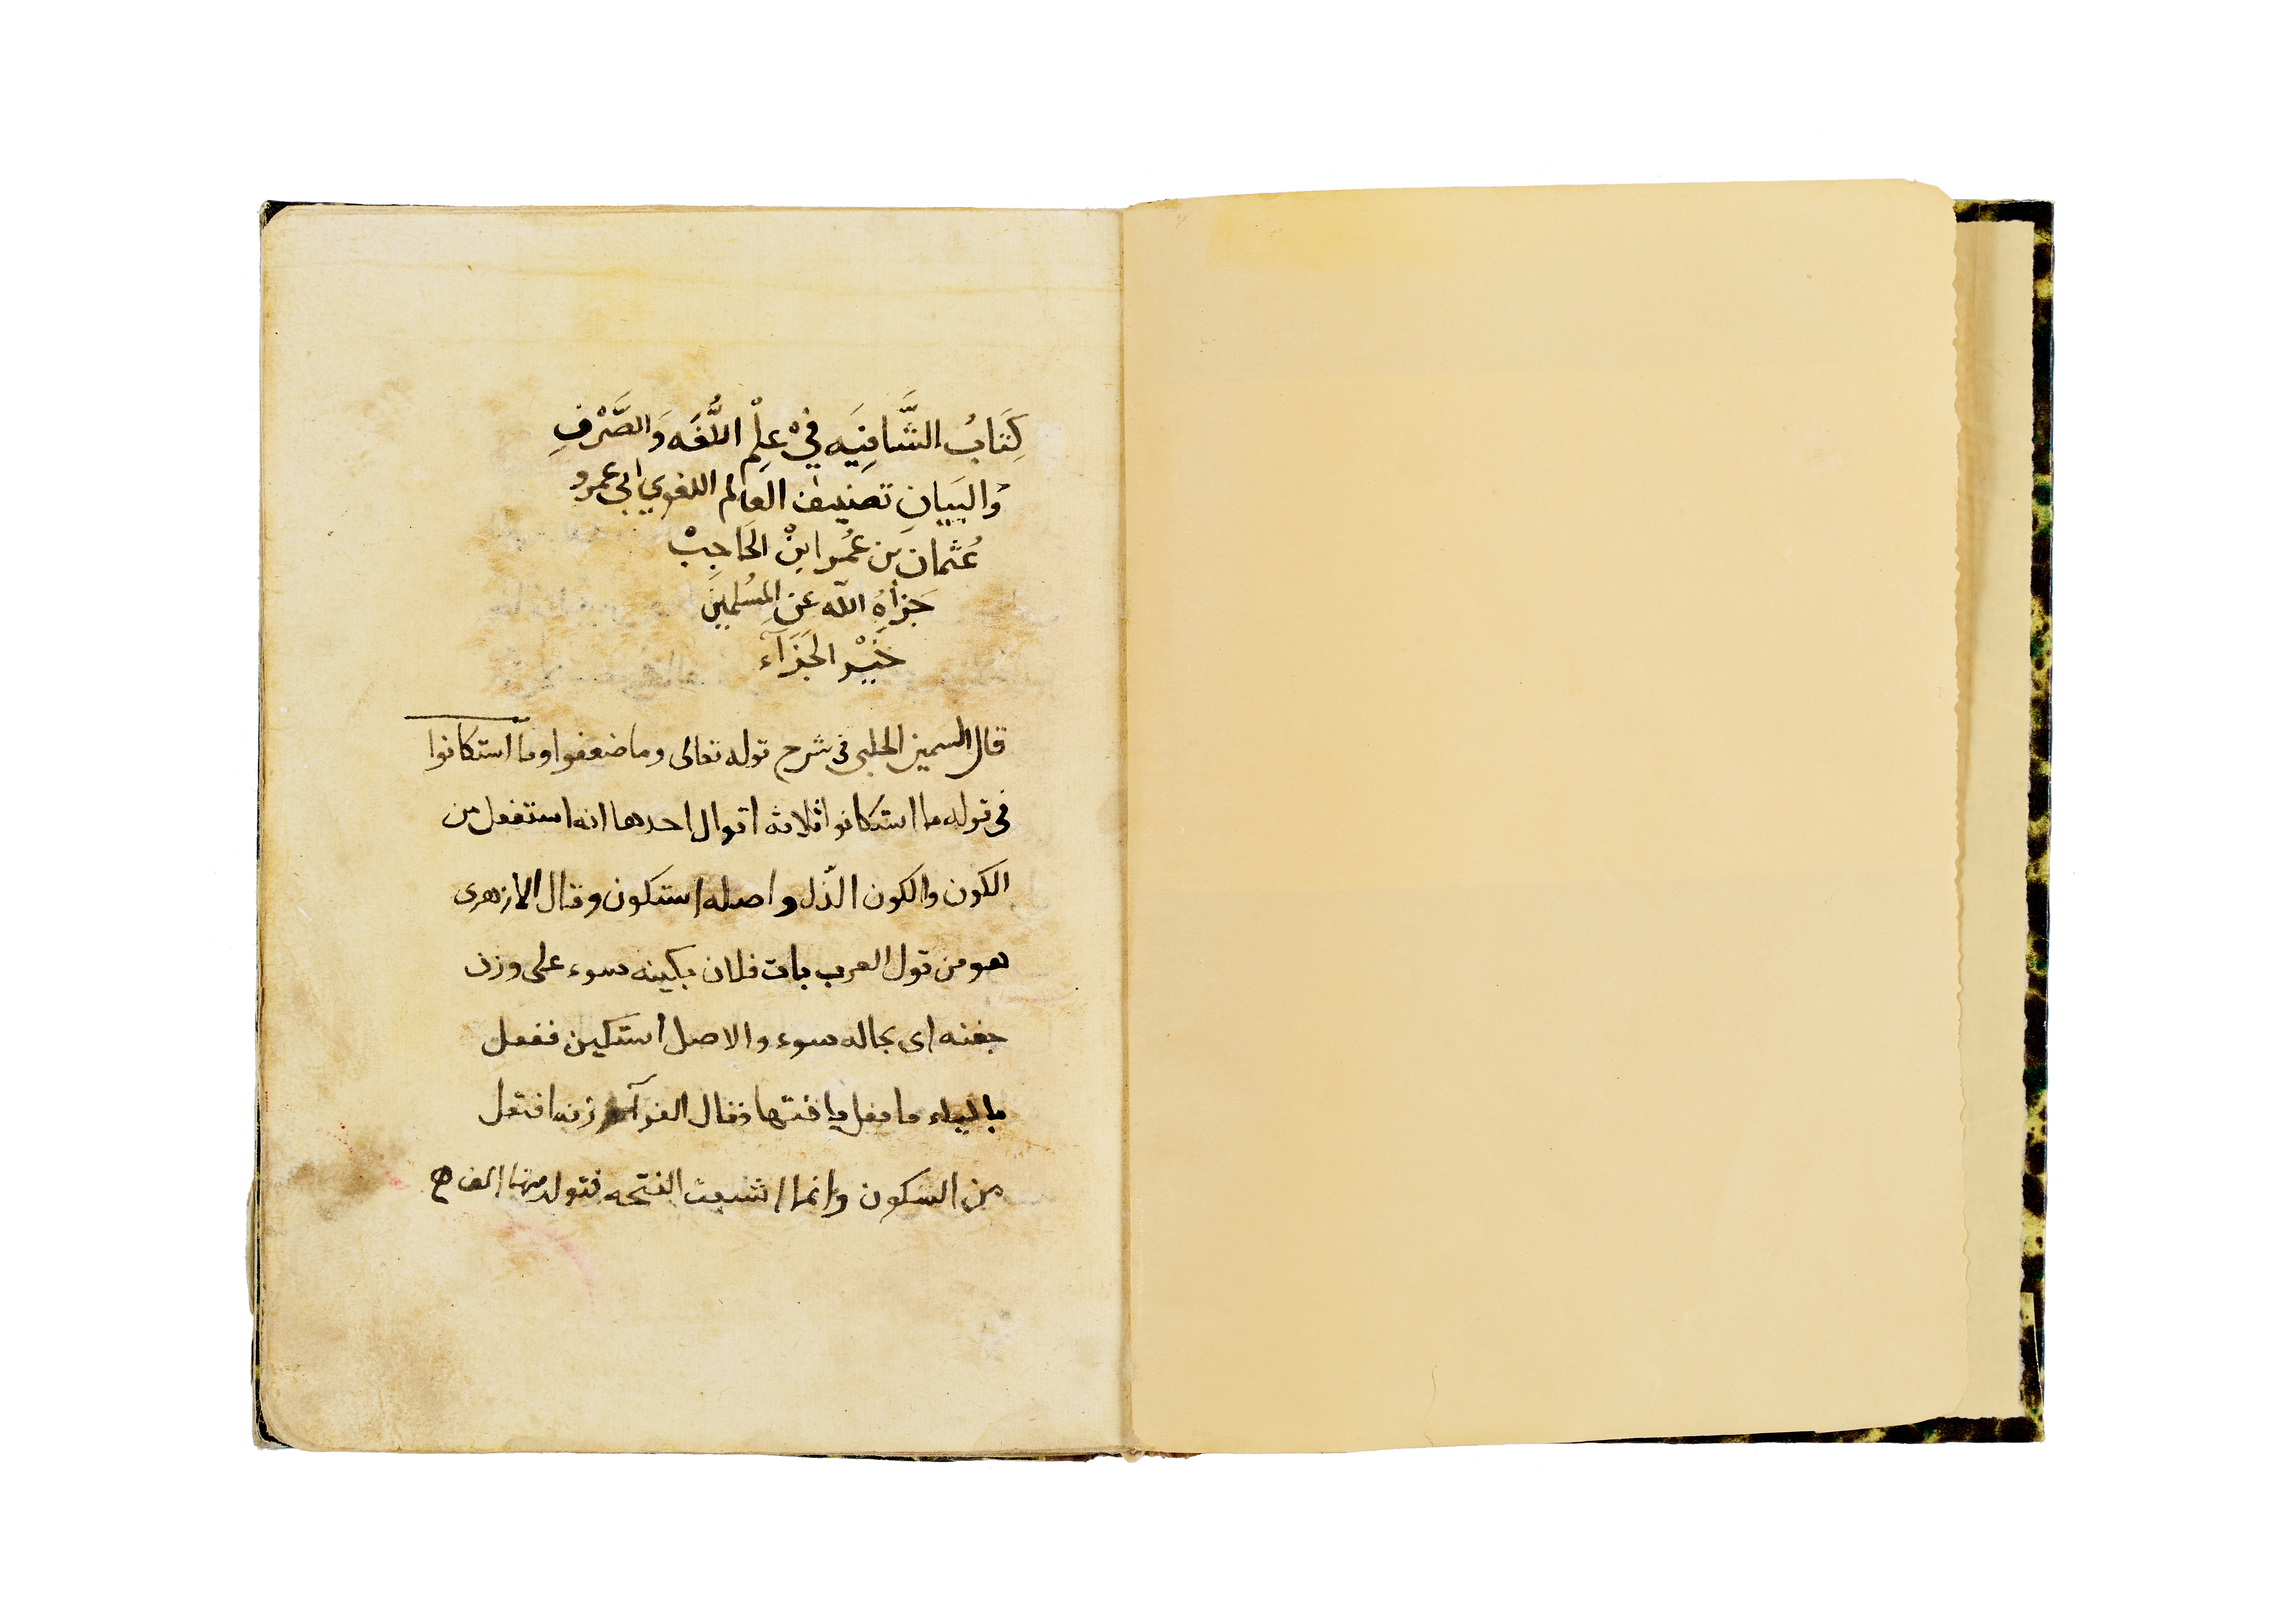 كِتَابُ الشَّافِيَه فِيْ عِلْمِ اللُّغَه وَالصَّرْفِ
وَالبَيَانِ تصنيف العالم اللغوي ابى عمرو
عُثمَانَ بن عُمر ابنْ الحَاجِبْ
جَزَاهُ الله عَنِ المُسْلِميِنَ
خَيْر الجَزَآء
قال السمين الحلبى فى شرح قوله تعالى وما ضعفوا وما استكانوا
فى قوله ما استكانوا ثلاثه اقوال احدها انه استفعل من
الكون والكون الذّل واصله استكون وقال الازهرى
هو من قول العرب بات فلان بكينه سوء على وزن
جفنه اى بحاله سوء والاصل استكين ففعل
بالياء ما فعل باختها وقال الفرآء وزنه افتعل
من السكون وانما اشبعت الفتحه فتولد منها الف